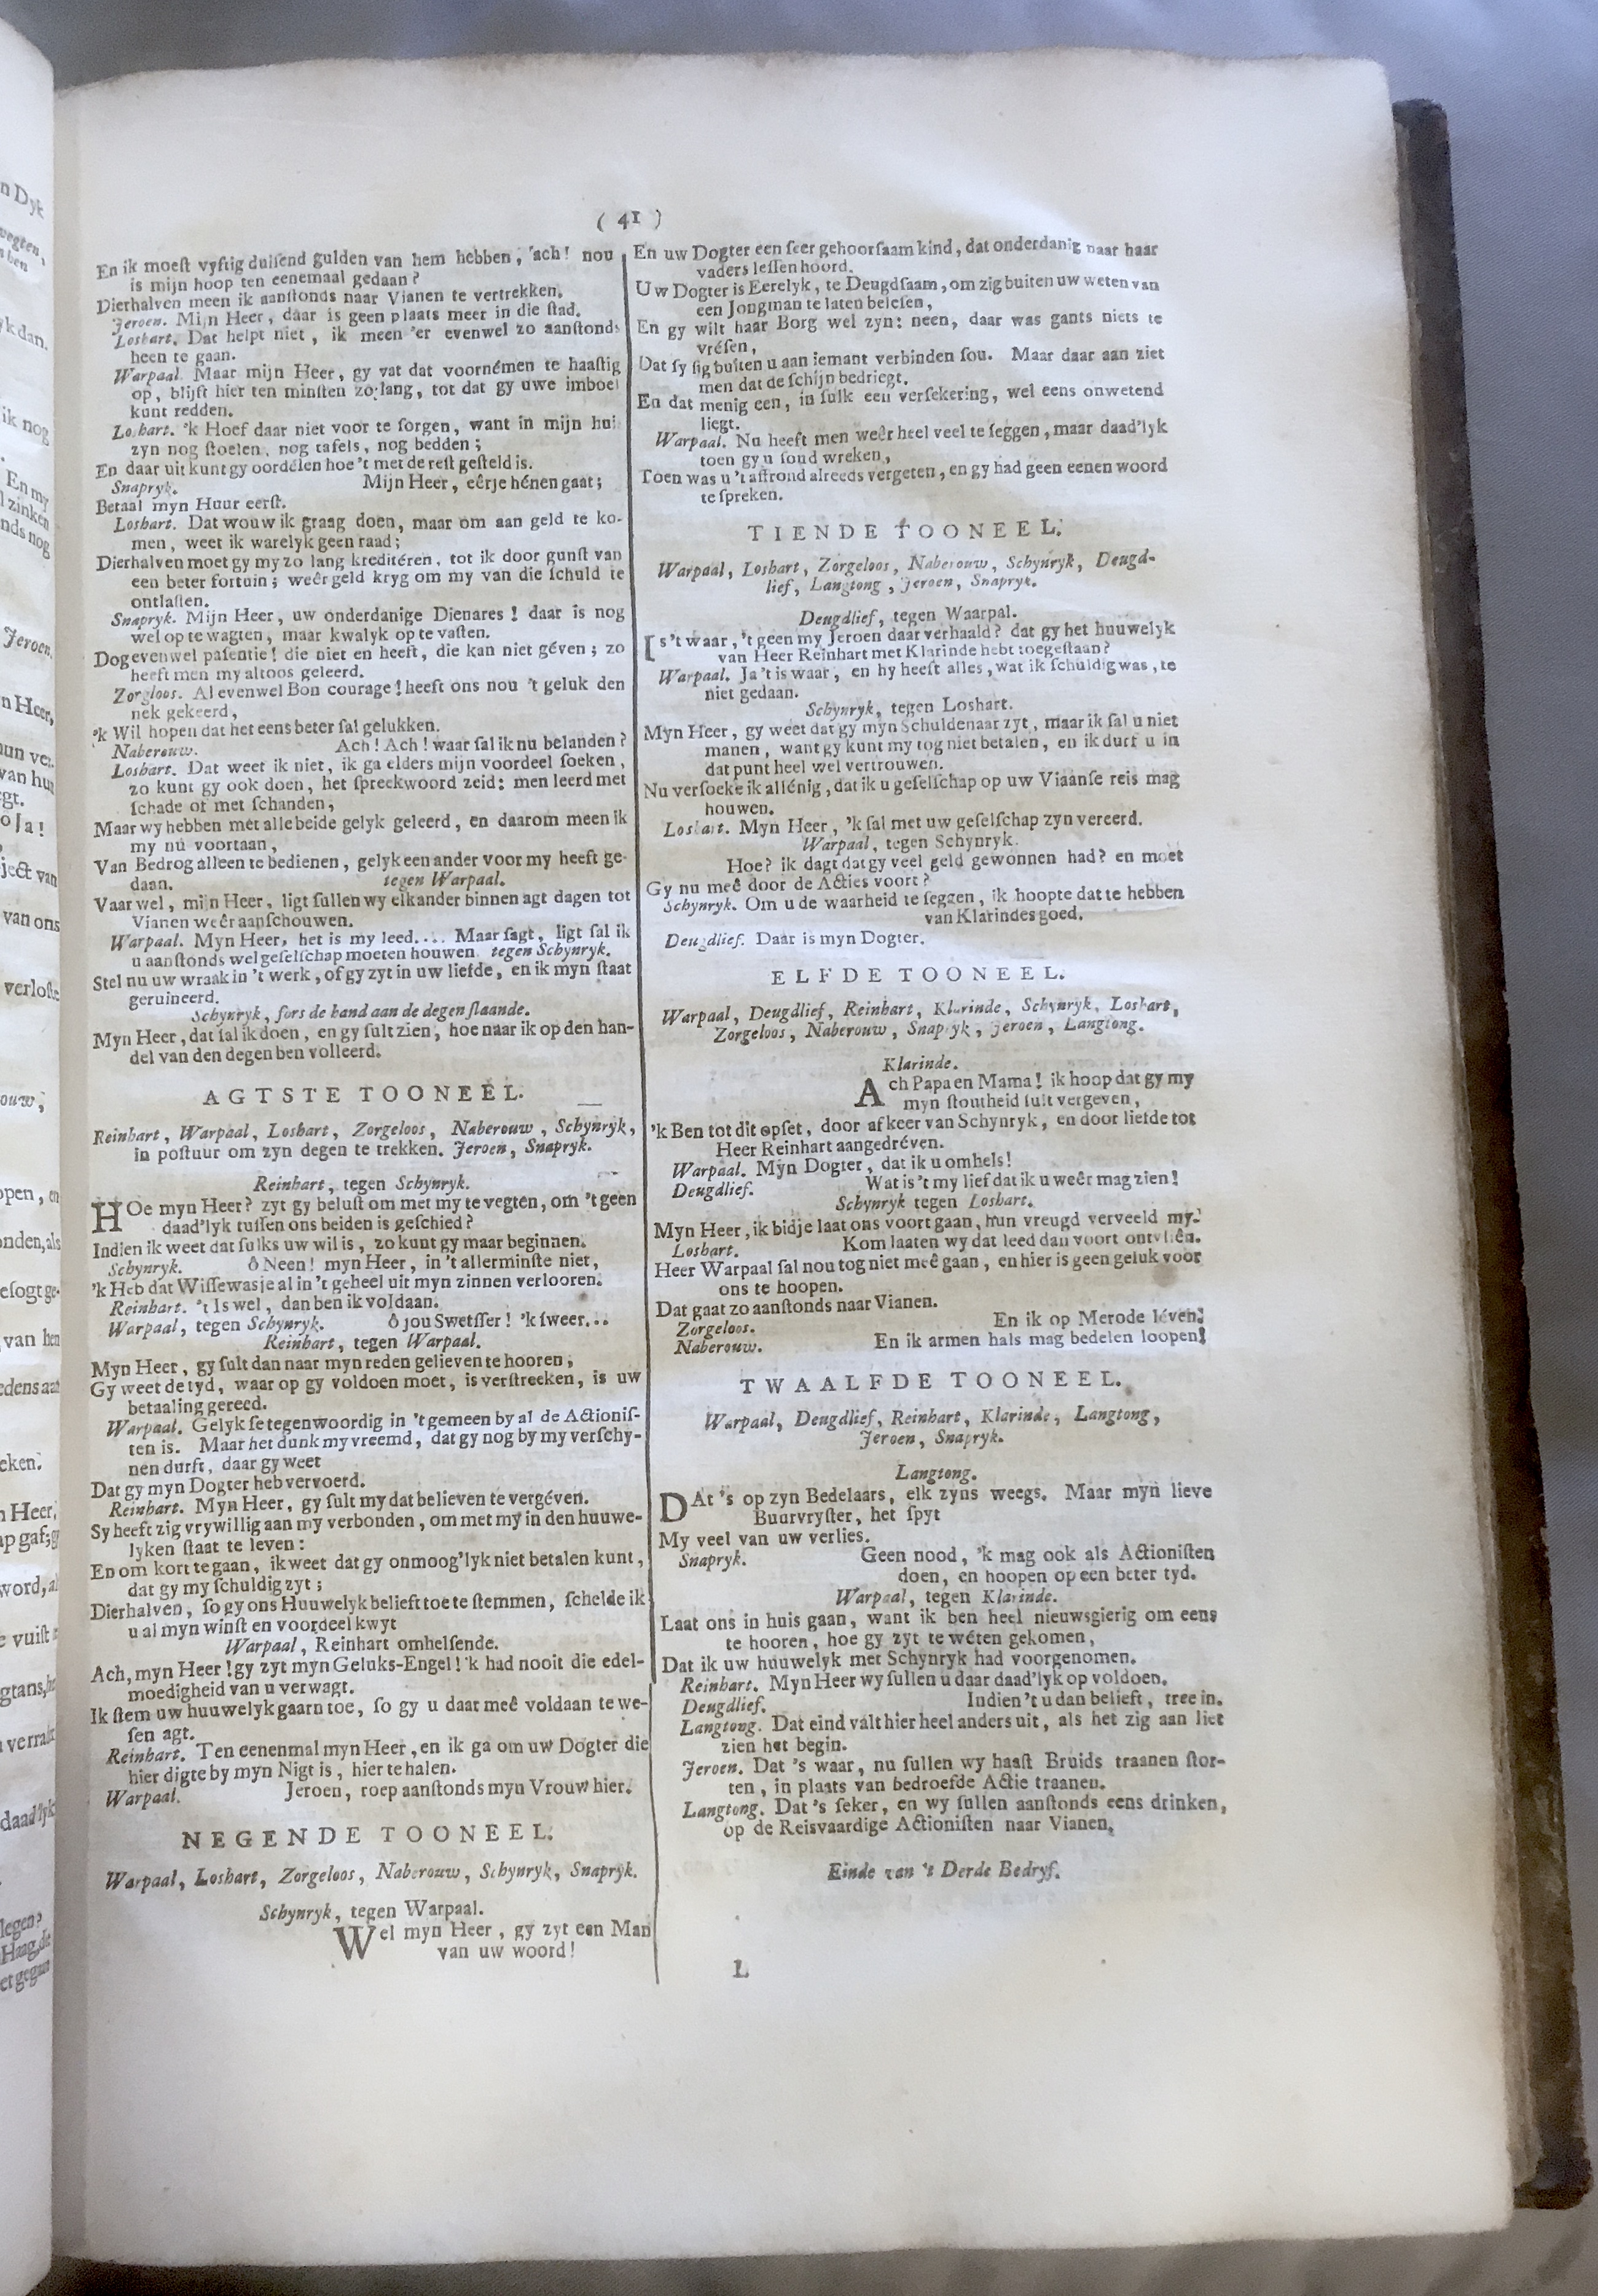 ( 41 )
En ik moeſt vyftig duiſend gulden van hem hebben, 'ach! nou
is mijn hoop ten eenemaal gedaan?
Dierhalven meen ik aanſtonds naar Vianen te vertrekken.
Jeroen. Mijn Heer, daar is geen plaats meer in die ſtad.
Loshart. Dat helpt niet, ik meen 'er evenwel zo aanſtonds
heen te gaan.
Warpaal. Maar mijn Heer, gy vat dat voornémen te haaſtig
op, blijft hier ten minſten zo lang, tot dat gy uwe imboel
kunt redden.
Loshart. 'k Hoef daar niet voor te ſorgen, want in mijn hui
zyn nog ſtoelen, nog tafels, nog bedden;
En daar uit kunt gy oordélen hoe 't met de reſt geſteld is.
Snapryk. Mijn Heer, eêrje hénen gaat;
Betaal myn Huur eerſt.
Loshart. Dat wouw ik graag doen, maar om aan geld te ko-
men, weet ik warelyk geen raad;
Dierhalven moet gy my zo lang kreditéren, tot ik door gunſt van
een beter fortuin; weêr geld kryg om my van die ſchuld te
ontlaſten.
Snapryk. Mijn Heer, uw onderdanige Dienares! daar is nog
wel op te wagten, maar kwalyk op te vaſten.
Dog evenwel paſentie! die niet en heeft, die kan niet géven; zo
heeft men my altoos geleerd.
Zorgloos. Al evenwel Bon courage! heeft ons nou 't geluk den
nek gekeerd,
'k Wil hopen dat het eens beter ſal gelukken.
Naberouw. Ach! Ach! waar ſal ik nu belanden?
Loshart. Dat weet ik niet, ik ga elders mijn voordeel ſoeken,
zo kunt gy ook doen, het ſpreekwoord zeid: men leerd met
ſchade of met ſchanden;
Maar wy hebben met alle beide gelyk geleerd, en daarom meen ik
my nu voortaan,
Van Bedrog alleen te bedienen, gelyk een ander voor my heeft ge-
daan. tegen Warpaal.
Vaar wel, mijn Heer, ligt ſullen wy elkander binnen agt dagen tot
Vianen weêr aanſchouwen.
Warpaal. Myn Heer, het is my leed.... Maar ſagt, ligt ſal ik
u aanſtonds wel geſelſchap moeten houwen. tegen Schynryk.
Stel nu uw wraak in 't werk, of gy zyt in uw liefde, en ik myn ſtaat
geruineerd.
Schynryk, fors de hand aan de degen ſlaande.
Myn Heer, dat ſal ik doen, en gy ſult zien, hoe naar ik op den han-
del van den degen ben volleerd.
AGTSTE TOONEEL.
Reinhart, Warpaal, Loshart, Zorgeloos, Naberouw, Schynryk,
in poſtuur om zyn degen te trekken. Jeroen, Snapryk.
Reinhart, tegen Schynryk.
HOe myn Heer? zyt gy beluſt om met my te vegten, om 't geen
daad'lyk tuſſen ons beiden is geſchied?
Indien ik weet dat ſulks uw wil is, zo kunt gy maar beginnen.
Schynryk. ô Neen! myn Heer, in 't allerminſte niet,
'k Heb dat Wiſſewasje al in 't geheel uit myn zinnen verlooren.
Reinhart. 't Is wel, dan ben ik voldaan.
Warpaal, tegen Schynryk. ô jou Swetſſer! 'k ſweer...
Reinhart, tegen Warpaal.
Myn Heer, gy ſult dan naar myn reden gelieven te hooren;
Gy weet de tyd, waar op gy voldoen moet, is verſtreeken, is uw
betaaling gereed.
Warpaal. Gelyk ſe tegenwoordig in 't gemeen by al de Actionis-
ten is. Maar het dunk my vreemd, dat gy nog by my verſchy-
nen durft, daar gy weet
Dat gy myn Dogter heb vervoerd.
Reinhart. Myn Heer, gy ſult my dat believen te vergéven.
Sy heeft zig vrywillig aan my verbonden, om met my in den huuwe-
lyken ſtaat te leven:
En om kort te gaan, ik weet dat gy onmoog'lyk niet betalen kunt,
dat gy my ſchuldig zyt;
Dierhalven, ſo gy ons Huuwelyk belieft toe te ſtemmen, ſchelde ik
u al myn winſt en voordeel kwyt
Warpaal, Reinhart omhelſende.
Ach, myn Heer! gy zyt myn Geluks-Engel! 'k had nooit die edel-
moedigheid van u verwagt.
Ik ſtem uw huuwelyk gaarn toe, ſo gy u daar meê voldaan te we-
ſen agt.
Reinhart. Ten eenenmal myn Heer, en ik ga om uw Dogter die
hier digte by myn Nigt is, hier te halen.
Warpaal. Jeroen, roep aanſtonds myn Vrouw hier.
NEGENDE TOONEEL.
Warpaal, Loshart, Zorgeloos, Naberouw, Schynryk, Snapryk.
Schynryk, tegen Warpaal.
Wel myn Heer, gy zyt een Man
van uw woord!
En uw Dogter een ſeer gehoorſaam kind, dat onderdanig naar haar
vaders leſſen hoord.
Uw Dogter is Eerelyk, te Deugdſaam, om zig buiten uw weten van
een Jongman te laten beleſen,
En gy wilt haar Borg wel zyn: neen, daar was gants niets te
vréſen,
Dat ſy ſig buiten u aan iemant verbinden ſou. Maar daar aan ziet
men dat de ſchijn bedriegt.
En dat menig een, in ſulk een verſekering, wel eens onwetend
liegt.
Warpaal. Nu heeft men weêr heel veel te ſeggen, maar daad'lyk
toen gy u ſoud wreken,
Toen was u 't affrond alreeds vergeten, en gy had geen eenen woord
te ſpreken.
TIENDE TOONEEL.
Warpaal, Loshart, Zorgeloos, Naberouw, Schynryk, Deugd-
lief, Langtong, Jeroen, Snapryk.
Deugdlief, tegen Waarpal.
Is 't waar, 't geen my Jeroen daar verhaald? dat gy het huuwelyk
van Heer Reinhart met Klarinde hebt toegeſtaan?
Warpaal. Ja 't is waar, en hy heeft alles, wat ik ſchuldig was, te
niet gedaan.
Schynryk, tegen Loshart.
Myn Heer, gy weet dat gy myn Schuldenaar zyt, maar ik ſal u niet
manen, want gy kunt my tog niet betalen, en ik durf u in
dat punt heel wel vertrouwen.
Nu verſoeke ik allénig, dat ik u geſelſchap op uw Viaanſe reis mag
houwen.
Loshart. Myn Heer, 'k ſal met uw geſelſchap zyn vereerd.
Warpaal, tegen Schynryk.
Hoe? ik dagt dat gy veel geld gewonnen had? en moet
Gy nu meê door de Acties voort?
Schynryk. Om u de waarheid te ſeggen, ik hoopte dat te hebben
van Klarindes goed.
Deugdlief. Daar is myn Dogter.
ELFDE TOONEEL.
Warpaal, Deugdlief, Reinhart, Klarinde, Schynryk, Loshart,
Zorgeloos, Naberouw, Snapryk, Jeroen, Langtong.
Klarinde.
Ach Papa en Mama! ik hoop dat gy my
myn ſtoutheid ſult vergeven,
'k Ben tot dit opſet, door afkeer van Schynryk, en door liefde tot
Heer Reinhart aangedréven.
Warpaal. Myn Dogter, dat ik u omhels!
Deugdlief. Wat is 't my lief dat ik u weêr mag zien!
Schynryk tegen Loshart.
Myn Heer, ik bidje laat ons voort gaan, hun vreugd verveeld my.
Loshart. Kom laaten wy dat leed dan voort ontvliên.
Heer Warpaal ſal nou tog niet meê gaan, en hier is geen geluk voor
ons te hoopen.
Dat gaat zo aanſtonds naar Vianen.
Zorgeloos. En ik op Merode léven!
Naberouw. En ik armen hals mag bedelen loopen!
TWAALFDE TOONEEL.
Warpaal, Deugdlief, Reinhart, Klarinde, Langtong,
Jeroen, Snapryk.
Langtong.
DAt 's op zyn Bedelaars, elk zyns weegs. Maar myn lieve
Buurvryſter, het ſpyt
My veel van uw verlies.
Snapryk. Geen nood, 'k mag ook als Actioniſten
doen, en hoopen op een beter tyd.
Warpaal, tegen Klarinde.
Laat ons in huis gaan, want ik ben heel nieuwsgierig om eens
te hooren, hoe gy zyt te wéten gekomen,
Dat ik uw huuwelyk met Schynryk had voorgenomen.
Reinhart. Myn Heer wy ſullen u daar daad'lyk op voldoen.
Deugdlief. Indien 't u dan belieft, tree in.
Langtong. Dat eind valt hier heel anders uit, als het zig aan liet
zien het begin.
Jeroen. Dat 's waar, nu ſullen wy haaſt Bruids traanen ſtor-
ten, in plaats van bedroefde Actie traanen.
Langtong. Dat 's ſeker, en wy ſullen aanſtonds eens drinken,
op de Reisvaardige Actioniſten naar Vianen.
Einde van 't Derde Bedryf.
L